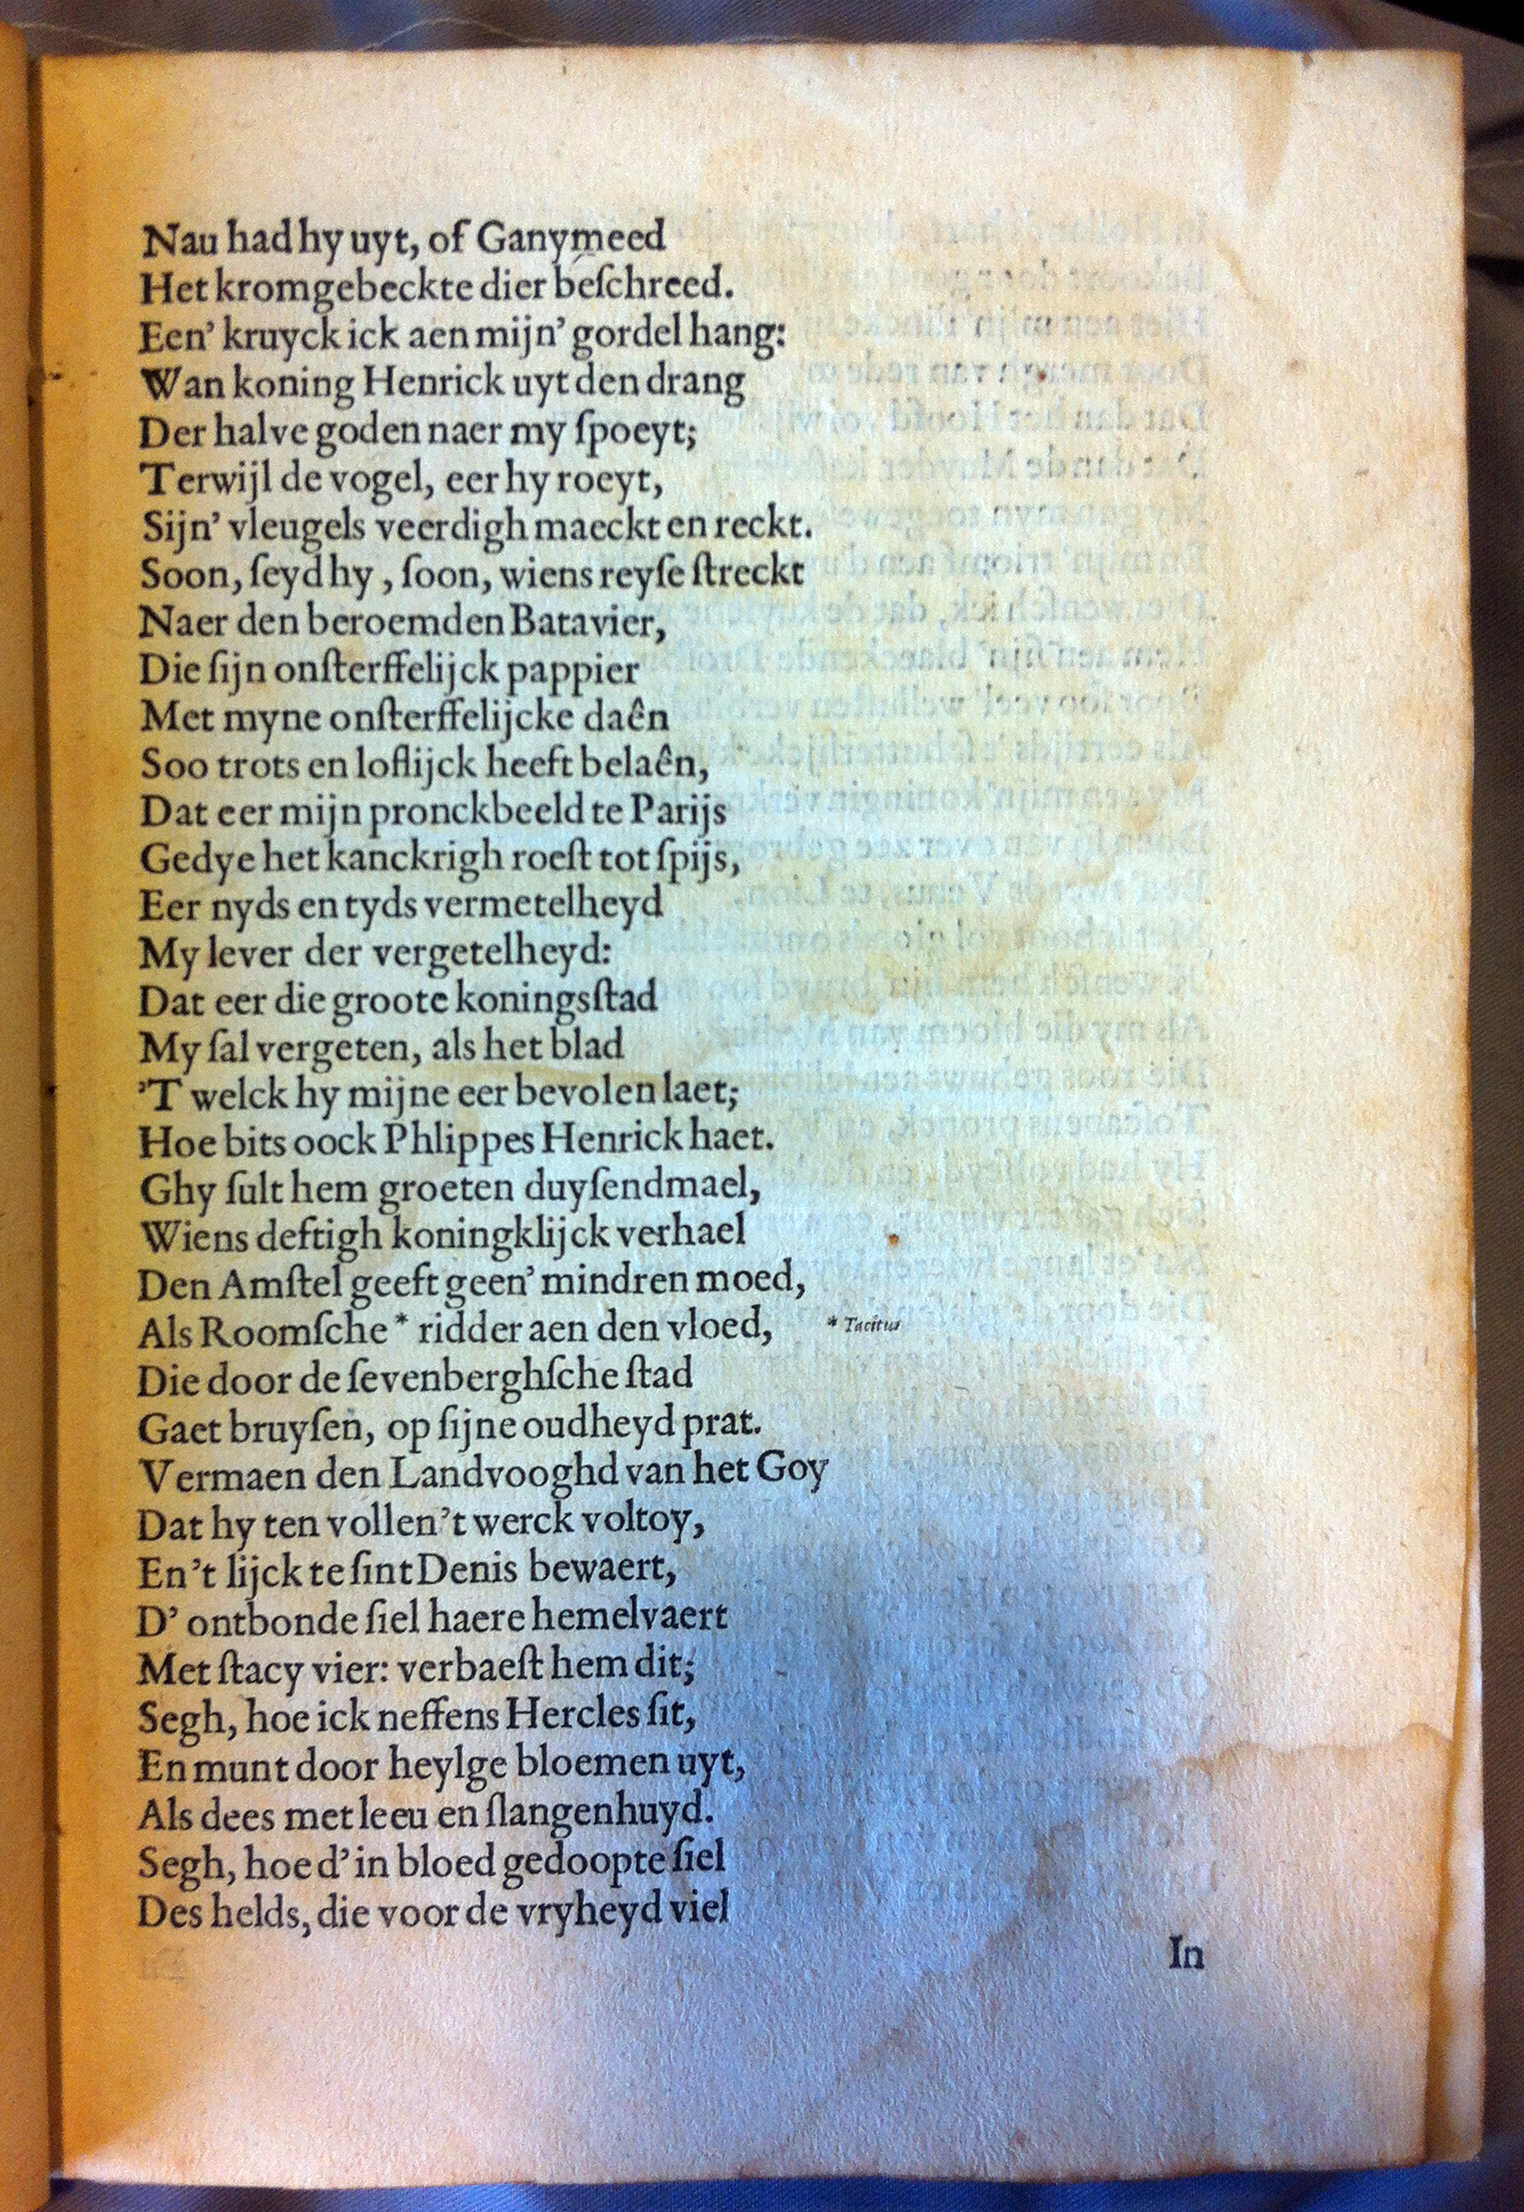 Nau had hy uyt, of Ganymeed
Het kromgebeckte dier beſchreed.
Een' kruyck ick aen mijn' gordel hang:
Wan koning Henrick uyt den drang
Der halve goden naer my ſpoeyt;
Terwijl de vogel, eer hy roeyt,
Sijn' vleugels veerdigh maeckt en reckt.
Soon, ſeyd hy, ſoon, wiens reyſe ſtreckt
Naer den beroemden Batavier,
Die ſijn onſterffelijck pappier
Met myne onſterffelijcke daên
Soo trots en loflijck heeft belaên,
Dat eer mijn pronckbeeld te Parijs
Gedye het kanckrigh roeſt tot ſpijs,
Eer nyds en tyds vermetelheyd
My lever der vergetelheyd:
Dat eer die groote koningsſtad
My ſal vergeten, als het blad
'T welck hy mijne eer bevolen laet;
Hoe bits oock Phlippes Henrick haet.
Ghy ſult hem groeten duyſendmael,
Wiens deftigh koningklijck verhael
Den Amſtel geeft geen' mindren moed,
Als Roomſche * ridder aen den vloed, * Tacitus
Die door de ſevenberghſche ſtad
Gaet bruyſen, op ſijne oudheyd prat.
Vermaen den Landvooghd van het Goy
Dat hy ten vollen 't werck voltoy,
En 't lijck te ſint Denis bewaert,
D' ontbonde ſiel haere hemelvaert
Met ſtacy vier: verbaeſt hem dit;
Segh, hoe ick neffens Hercles ſit,
En munt door heylge bloemen uyt,
Als dees met leeu en ſlangenhuyd.
Segh, hoe d' in bloed gedoopte ſiel
Des helds, die voor de vryheyd viel
In